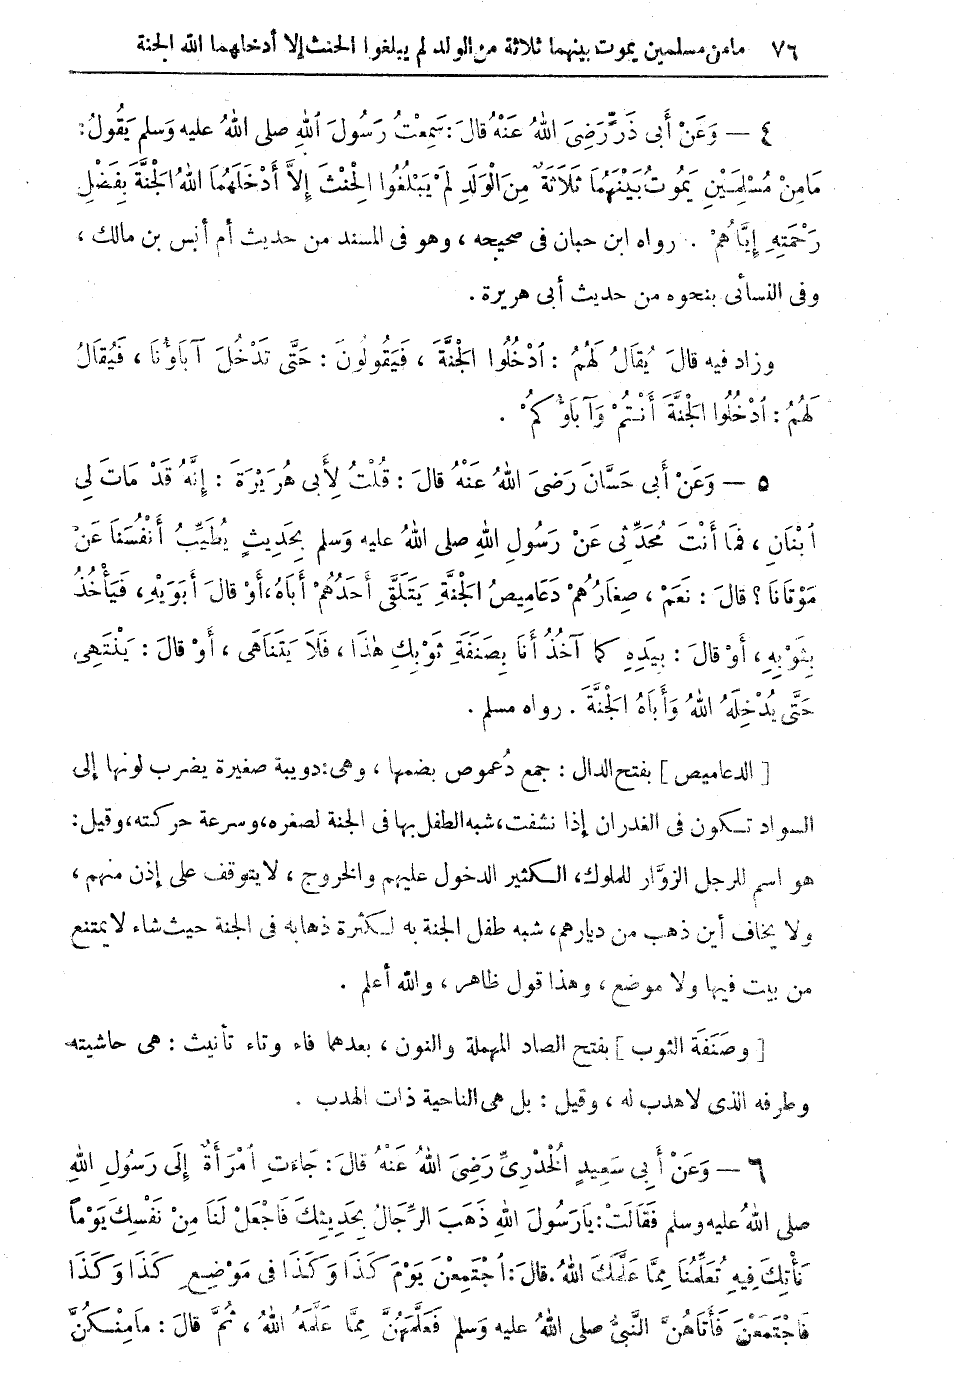 ٧٦ مامن مسلمين يموت بينهما ثلاثة من الولد لم يبلغوا الحنث إلا أدخلهما الله الجنة
٤ — وَعَنْ أَبى ذَرٍّ رَضِىَ اللهُ عَنْهُ قالَ: سَمِعْتُ رَسُولَ ٱللهِ صلى اللهُ عليه وَسلم يَقُولُ:
مَامِنْ مُسْلِمَيْنِ يَمُوتُ بَيْنَهُمَا ثَلَاثَةٌ مِنَ الْوَلَدِ لَمْ يَبْلُغُوا الْحِنْثَ إِلاَّ أَدْخَلَهُمَا اللهُ الْجَنَّةَ بِفَضْلِ
رَحْمَتِهِ إِيَّاهُمْ . رواه ابن حبان فى صحيحه ، وهو فى المسند من حديث أم أنس بن مالك ،
وفى النسائى بنحوه من حديث أبى هريرة .
وزاد فيه قالَ يُقَالُ لَهُمُ : ٱدْخُلُوا الْجَنَّةَ ، فَيَقُولُونَ : حَتَّى تَدْخُلَ آبَاؤُنَا ، فَيُقَالُ
لَهُمُ : ٱدْخُلُوا الْجَنَّةَ أَنْتُمْ وَآبَاؤُكُمْ .
٥ — وَعَنْ أَبى حَسَّانَ رَضِىَ اللهُ عَنْهُ قالَ : قُلْتُ لِأَبى هُرَيْرَةَ : إِنَّهُ قَدْ مَاتَ لِى
ٱبْنَانِ ، فَمَا أَنْتَ مُحَدِّثِى عَنْ رَسُولِ اللهِ صلى اللهُ عليه وَسلم بِحَدِيثٍ يُطَيِّبُ أَنْفُسَنَا عَنْ
مَوْتَانَا ؟ قالَ : نَعَمْ ، صِغَارُهُمْ دَعَامِيصُ الْجَنَّةِ يَتَلَقَّى أَحَدُهُمْ أَبَاهُ، أَوْ قالَ أَبَوَيْهِ، فَيَأْخُذُ
بِثَوْبِهِ، أَوْ قالَ : بِيَدِهِ كما آخُذُ أَنَا بِصَنَفَةِ ثَوْبِكَ هٰذَا ، فَلاَ يَتَنَاهَى ، أَوْ قالَ : يَنْتَهِى
حَتَّى يُدْخِلَهُ اللهُ وَأَبَاهُ الْجَنَّةَ . رواه مسلم .
[ الدعاميص ] بفتح الدال : جمع دُعموص بضمها ، وهى: دويبة صغيرة يضرب لونها إلى
السواد تكون فى الغدران إذا نشفت، شبه الطفل بها فى الجنة لصغره، وسرعة حركته، وقيل:
هو اسم للرجل الزوَّار للملوك، الكثير الدخول عليهم والخروج ، لا يتوقف على إذن منهم ،
ولا يخاف أين ذهب من ديارهم، شبه طفل الجنة به لكثرة ذهابه فى الجنة حيث شاء لا يمتنع
من بيت فيها ولا موضع ، وهذا قول ظاهر ، والله أعلم .
[ وصَنَفَة الثوب ] بفتح الصاد المهملة والنون ، بعدهما فاء وتاء تأنيث : هى حاشيته
وطرفه الذى لاهدب له ، وقيل : بل هى الناحية ذات الهدب .
٦ — وَعَنْ أَبِى سَعِيدٍ الْخُدْرِىِّ رَضِىَ اللهُ عَنْهُ قالَ : جَاءَتِ ٱمْرَأَةٌ إِلَى رَسُولِ اللهِ
صلى اللهُ عليه وسلم فَقَالَتْ: يَارَسُولَ اللهِ ذَهَبَ الرِّجَالُ بِحَدِيثِكَ فَاجْعَلْ لَنَا مِنْ نَفْسِكَ يَوْماً
نَأْتِكَ فِيهِ تُعَلِّمُنَا مِمَّا عَلَّمَكَ اللهُ. قالَ: ٱجْتَمِعْنَ يَوْمَ كَذَا وَكَذَا فى مَوْضِعِ كَذَا وَكَذَا
فَاجْتَمَعْنَ فَأَتَاهُنَّ النَّبِىُّ صلى اللهُ عليه وَسلم فَعَلَّمَهُنَّ مِمَّا عَلَّمَهُ اللهُ ، ثُمَّ قالَ : مامِنْكُنَّ